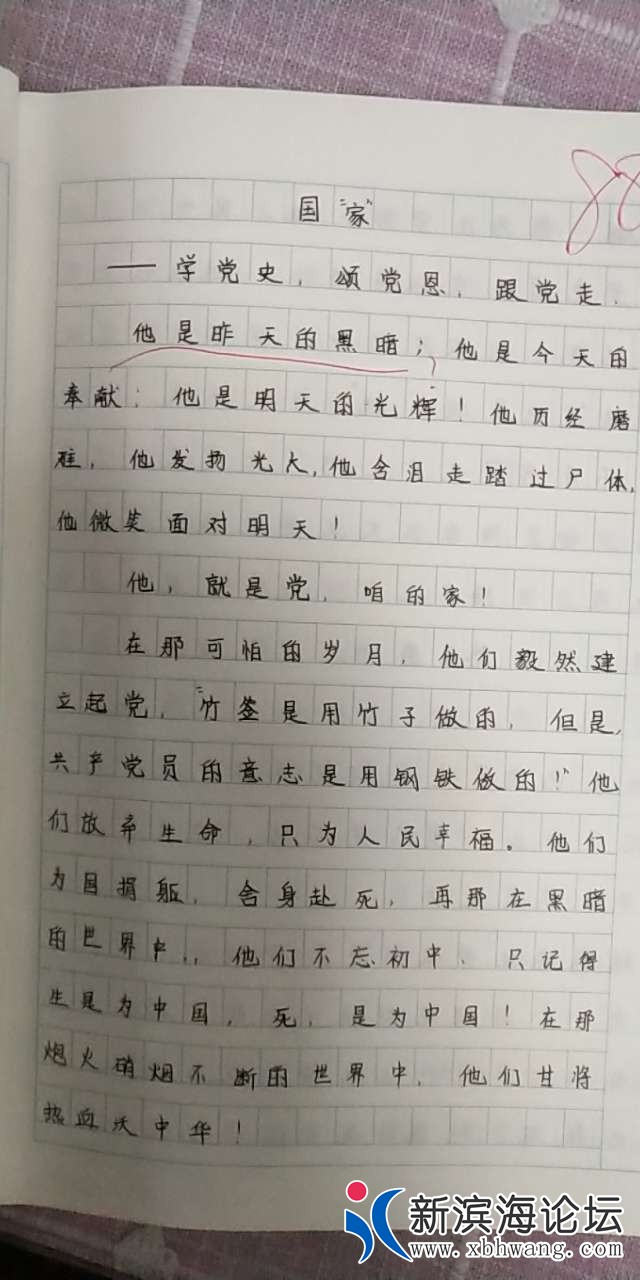 88
国"家"
——学党史，颂党恩，跟党走．
他是昨天的黑暗；他是今天的
奉献；他是明天的光辉！他历经磨
难，他发扬光大，他含泪走踏过尸体，
他微笑面对明天！
他，就是党，咱的家！
在那可怕的岁月，他们毅然建
立起党，"竹签是用竹子做的，但是，
共产党员的意志是用钢铁做的！"他
们放弃生命，只为人民幸福。他们
为国捐躯，舍身赴死，再那在黑暗
的世界中，，他们不忘初中、只记得
生是为中国，死，是为中国！在那
炮火硝烟不断的世界中，他们甘将
热血沃中华！
新滨海论坛
www.xbhwang.com